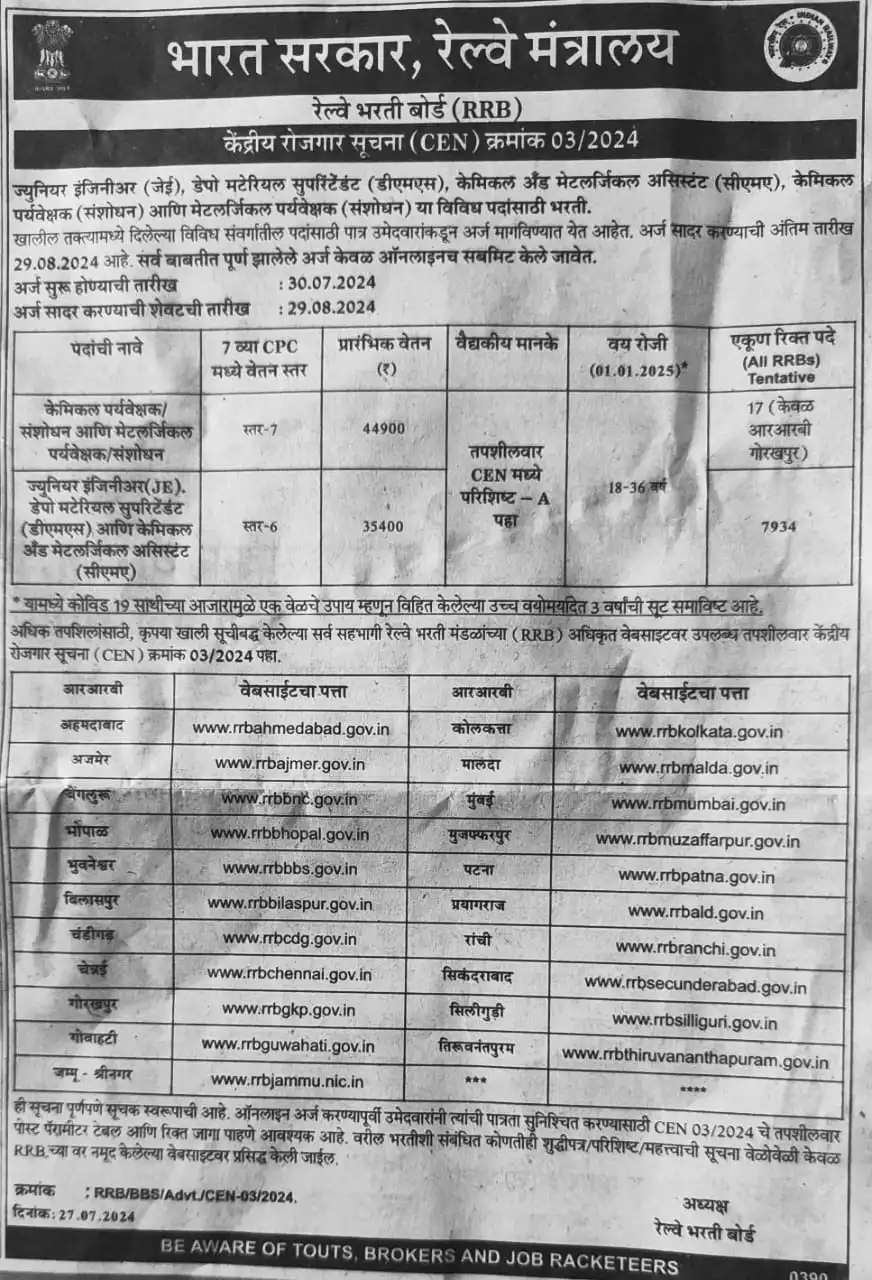 भारत सरकार, रेल्वे मंत्रालय
रेल्वे भरती बोर्ड (RRB)
केंद्रीय रोजगार सूचना (CEN) क्रमांक 03/2024
ज्युनियर इंजिनीअर (जेई), डेपो मटेरियल सुपरिंटेंडंट (डीएमएस), केमिकल अँड मेटलर्जिकल असिस्टंट (सीएमए), केमिकल
पर्यवेक्षक (संशोधन) आणि मेटलर्जिकल पर्यवेक्षक (संशोधन) या विविध पदांसाठी भरती.
खालील तक्त्यामध्ये दिलेल्या विविध संवर्गातील पदांसाठी पात्र उमेदवारांकडून अर्ज मागविण्यात येत आहेत. अर्ज सादर करण्याची अंतिम तारीख
29.08.2024 आहे. सर्व बाबतीत पूर्ण झालेले अर्ज केवळ ऑनलाइनच सबमिट केले जावेत.
अर्ज सुरू होण्याची तारीख : 30.07.2024
अर्ज सादर करण्याची शेवटची तारीख : 29.08.2024
पदांची नावे
7 व्या CPC
मध्ये वेतन स्तर
प्रारंभिक वेतन
(₹)
वैद्यकीय मानके
वय रोजी
(01.01.2025)*
एकूण रिक्त पदे
(All RRBs)
Tentative
केमिकल पर्यवेक्षक/
संशोधन आणि मेटलर्जिकल
पर्यवेक्षक/संशोधन
स्तर-7
44900
तपशीलवार
CEN मध्ये
परिशिष्ट – A
पहा
18-36 वर्ष
17 (केवळ
आरआरबी
गोरखपुर)
ज्युनियर इंजिनीअर(JE).
डेपो मटेरियल सुपरिटेंडंट
(डीएमएस) आणि केमिकल
अँड मेटलर्जिकल असिस्टंट
(सीएमए)
स्तर-6
35400
7934
* यामध्ये कोविड 19 साथीच्या आजारामुळे एक वेळचे उपाय म्हणून विहित केलेल्या उच्च वयोमर्यादेत 3 वर्षांची सूट समाविष्ट आहे.
अधिक तपशिलांसाठी, कृपया खाली सूचीबद्ध केलेल्या सर्व सहभागी रेल्वे भरती मंडळांच्या (RRB) अधिकृत वेबसाइटवर उपलब्ध तपशीलवार केंद्रीय
रोजगार सूचना (CEN) क्रमांक 03/2024 पहा.
आरआरबी वेबसाईटचा पत्ता आरआरबी वेबसाईटचा पत्ता
अहमदाबाद www.rrbahmedabad.gov.in कोलकत्ता www.rrbkolkata.gov.in
अजमेर www.rrbajmer.gov.in मालदा www.rrbmalda.gov.in
बेंगलुरू www.rrbbnc.gov.in मुंबई www.rrbmumbai.gov.in
भोपाळ www.rrbbhopal.gov.in मुजफ्फरपुर www.rrbmuzaffarpur.gov.in
भुवनेश्वर www.rrbbbs.gov.in पटना www.rrbpatna.gov.in
बिलासपुर www.rrbbilaspur.gov.in प्रयागराज www.rrbald.gov.in
चंडीगढ www.rrbcdg.gov.in रांची www.rrbranchi.gov.in
चेन्नई www.rrbchennai.gov.in सिकंदराबाद www.rrbsecunderabad.gov.in
गोरखपुर www.rrbgkp.gov.in सिलीगुड़ी www.rrbsilliguri.gov.in
गोवाहटी www.rrbguwahati.gov.in तिरूवनंतपुरम www.rrbthiruvananthapuram.gov.in
जम्मू - श्रीनगर www.rrbjammu.nic.in *** ****
ही सूचना पूर्णपणे सूचक स्वरूपाची आहे. ऑनलाइन अर्ज करण्यापूर्वी उमेदवारांनी त्यांची पात्रता सुनिश्चित करण्यासाठी CEN 03/2024 चे तपशीलवार
पोस्ट पॅरामीटर टेबल आणि रिक्त जागा पाहणे आवश्यक आहे. वरील भरतीशी संबंधित कोणतीही शुद्धीपत्र/परिशिष्ट/महत्त्वाची सूचना वेळोवेळी केवळ
RRB च्या वर नमूद केलेल्या वेबसाइटवर प्रसिद्ध केली जाईल.
क्रमांक : RRB/BBS/Advt./CEN-03/2024.
दिनांक: 27.07.2024
अध्यक्ष
रेल्वे भरती बोर्ड
BE AWARE OF TOUTS, BROKERS AND JOB RACKETEERS
0390